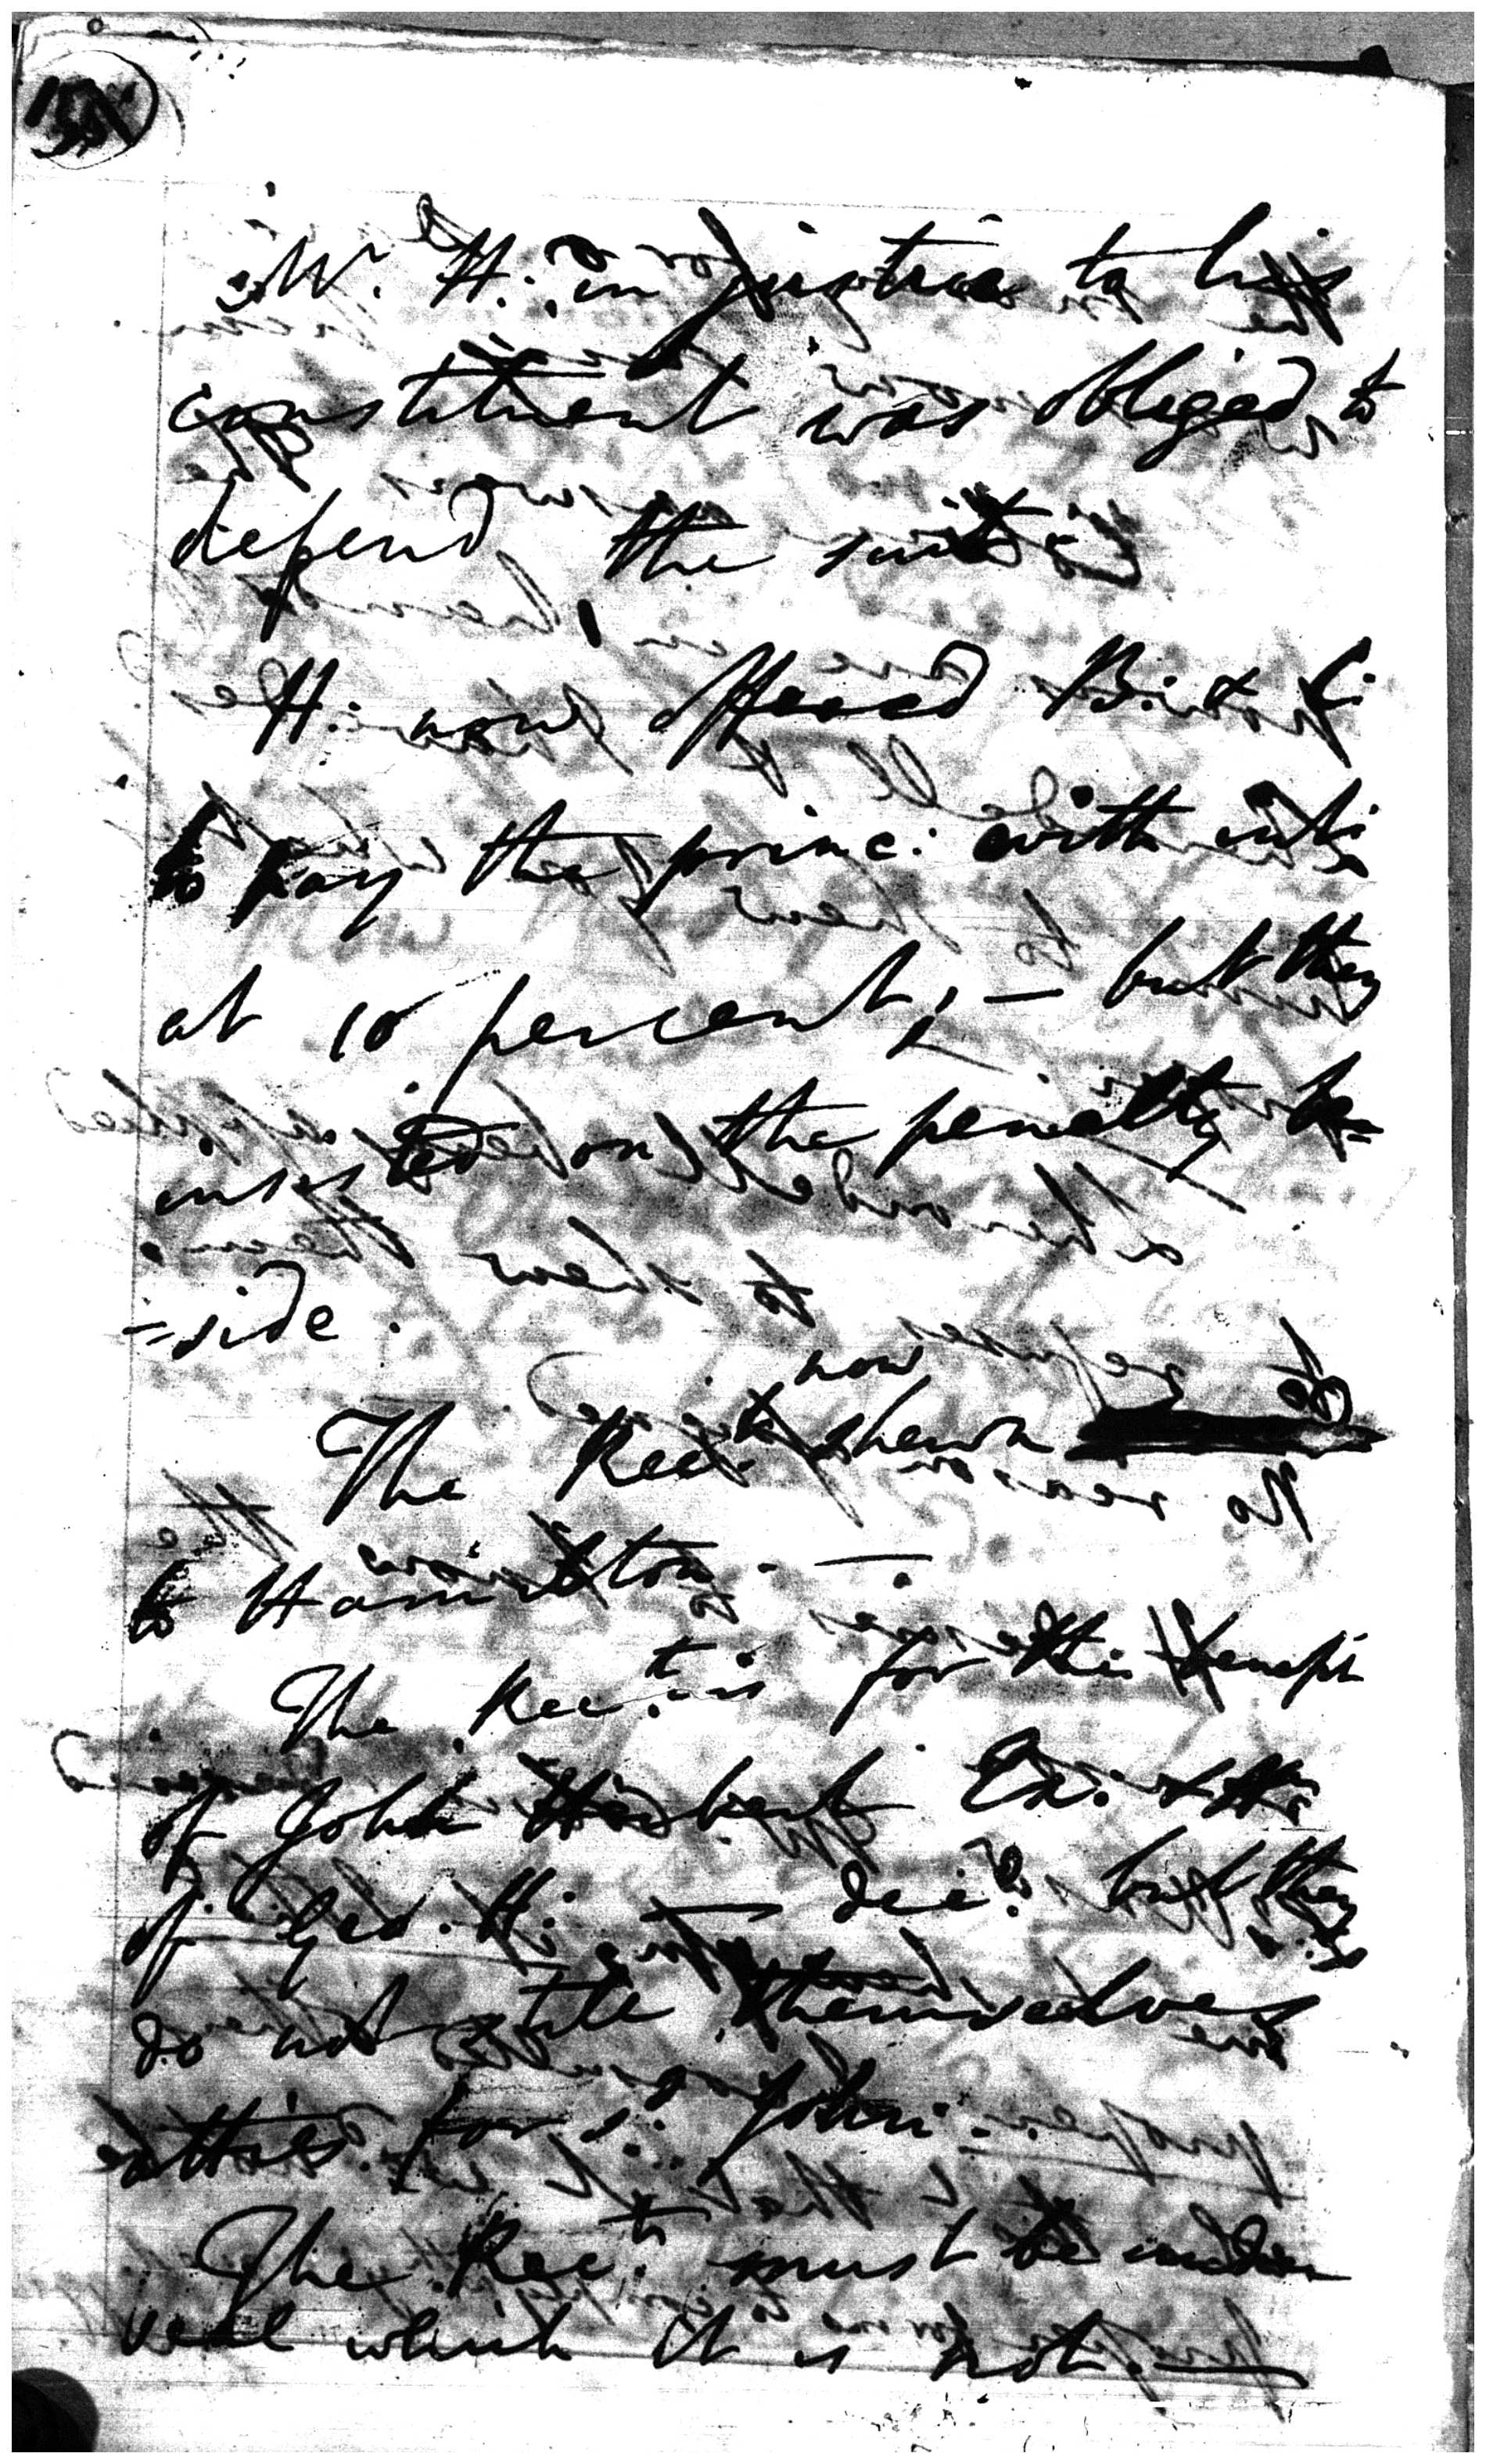 Mr. H. in justice to his
constituent was obliged to
defend the suit
H. now offered B. & C.
to pay the princ: with int:
at 10 percent; — but they
insisted on the penalty be=
=side.
now
The Rect. shewn
to Hamilton. —
The Rect. is for the benefit
of John Herbert Ex:
of Geo. H. — decd. but they
do not stile themselves
atties for sd. John. —
The Rect. must be under
seal which it is not. —